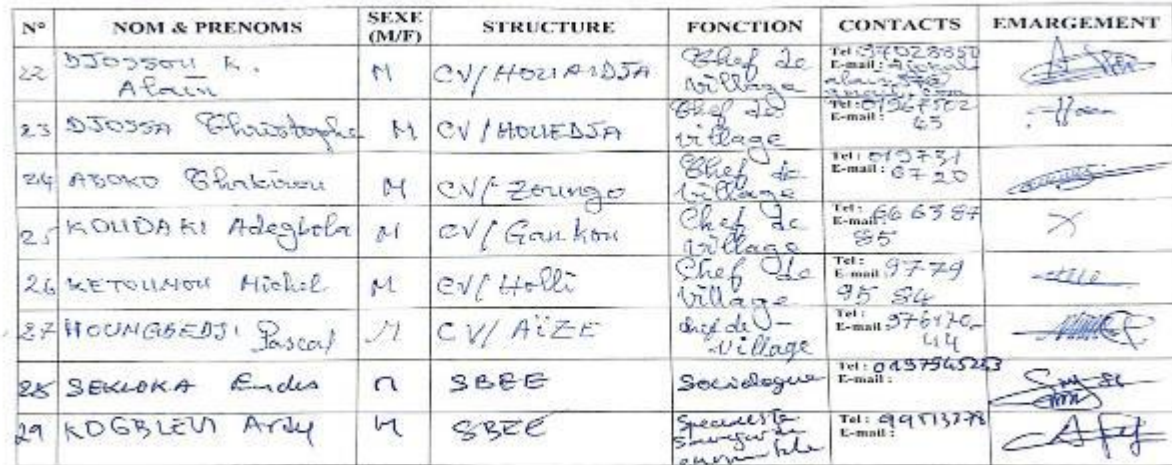 N° NOM & PRENOMS SEXE (M/F) STRUCTURE FONCTION CONTACTS EMARGEMENT
22 DJOSSOU K. Alain M CV/HOUIADJA Chef de village Tel: 97028850 E-mail:
23 DJOSSA Christophe M CV/HOUEDJA Chef de village Tel: 01967502 65 E-mail:
24 ABOKO Chakirou M CV/Zoungo Chef de village Tel: 019731 6720 E-mail:
25 KOUDAKI Adegbola M CV/Gankou Chef de village Tel: 666387 85 E-mail:
26 KETOUNOU Michel M CV/Holli Chef de village Tel: 9779 95 84 E-mail:
27 HOUNGBEDJI Pascal M CV/AÏZE chef de village Tel: 976170 44 E-mail:
28 SEKLOKA M SBEE Sociologue Tel: 0197945253 E-mail:
29 KOGBLEVI Ardy M SBEE Tel: 99513778 E-mail: